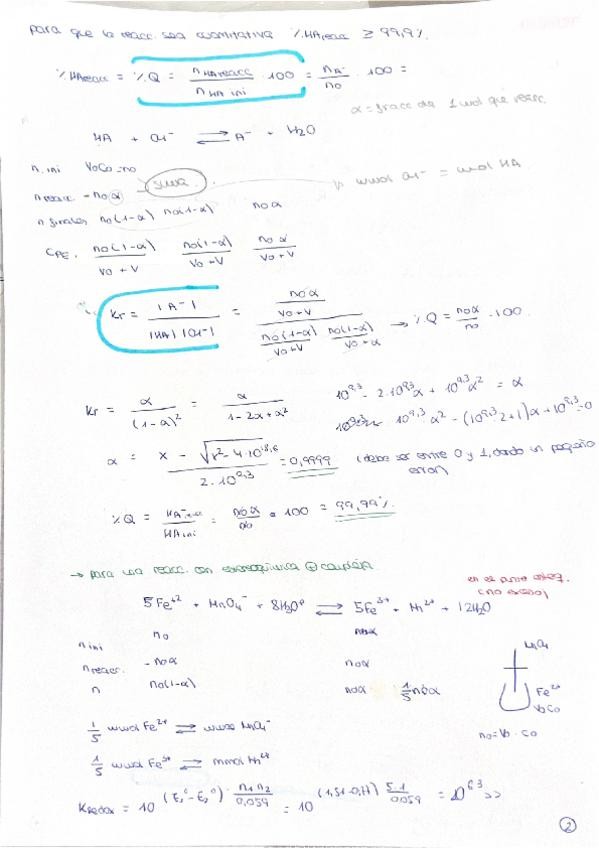 para que la reacc. sea cuantitativa %HAreacc ≥ 99,9%.
%HAreacc = %Q = nHAreacc / nHA ini · 100 = nA⁻ / no · 100 =
α = fracc de 1 mol que reacc.
HA + OH⁻ ⇌ A⁻ + H2O
n. ini VoCo = no
n reacc. - noα mmol OH⁻ = mmol HA
n finales no(1-α) no(1-α) noα
CPE. no(1-α) / Vo+V no(1-α) / Vo+V noα / Vo+V
Kr = |A⁻| / |HA||OH⁻| = noα / Vo+V / no(1-α) / Vo+V no(1-α) / Vo+α → %Q = noα / no · 100.
Kr = α / (1-α)² = α / 1-2α+α² 10^9,3 - 2·10^9,3 α + 10^9,3 α² = α
10^9,3 α² - (10^9,3 2+1)α + 10^9,3 = 0
α = x - √x² - 4·10^18,6 / 2·10^9,3 = 0,9999 (debe ser entre 0 y 1, dando un pequeño error)
%Q = / HA ini = noα / no · 100 = 99,99%.
→ para una reacc. con estequiometría
en el punto esteq. (no exceso)
5Fe⁺² + MnO4⁻ + 8H3O⁺ ⇌ 5Fe³⁺ + Mn²⁺ + 12H2O
n ini no noα
n reacc. - noα noα
n no(1-α) noα 1/5 noα
MnO4
Fe²⁺
VoCo
no = Vo · Co
1/5 mmol Fe²⁺ ⇌ mmol MnO4⁻
1/5 mmol Fe³⁺ ⇌ mmol Mn²⁺
Kredox = 10^(E1° - E2°) n1 n2 / 0,059 = 10^(1,51-0,77) 5·1 / 0,059 = 10^63 >>
2